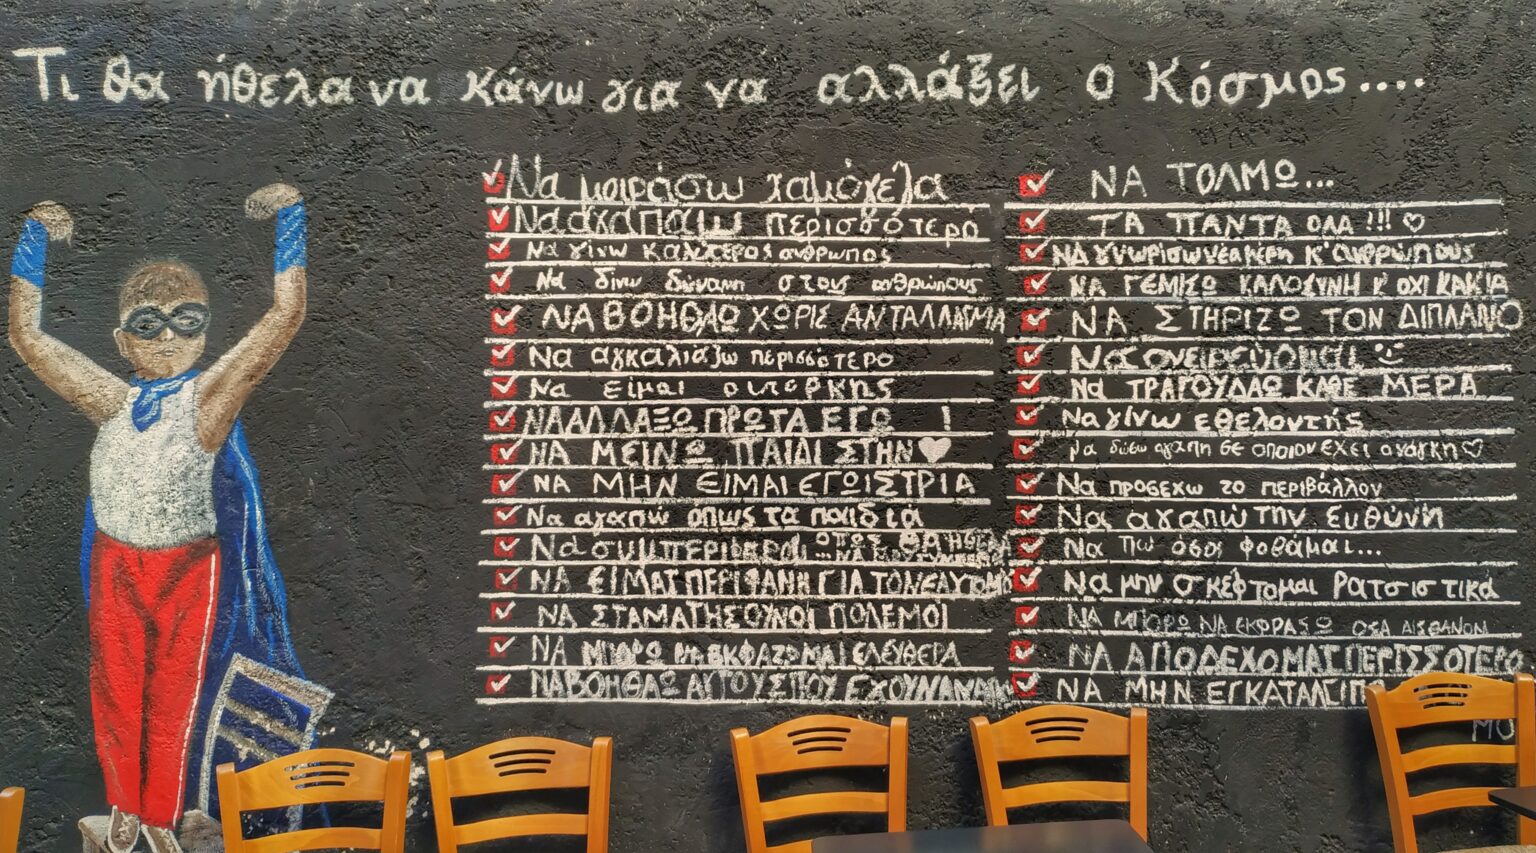 Τι θα ήθελα να κάνω για να αλλάξει ο Κόσμος....
Να μοιράσω χαμόγελα
Να αγαπάω περισσότερο
Να γίνω καλύτερος άνθρωπος
Να δίνω δύναμη στους ανθρώπους
ΝΑ ΒΟΗΘΑΩ ΧΩΡΙΣ ΑΝΤΑΛΛΑΓΜΑ
Να αγκαλιάζω περισσότερο
Να είμαι αυταρκης
ΝΑ ΑΛΛΑΞΩ ΠΡΩΤΑ ΕΓΩ !
ΝΑ ΜΕΙΝΩ ΠΑΙΔΙ ΣΤΗΝ ♥
ΝΑ ΜΗΝ ΕΙΜΑΙ ΕΓΩΙΣΤΡΙΑ
Να αγαπώ όπως τα παιδιά
Να συμπεριφεραι ΟΠΩΣ ΘΑ ΗΘΕΛΑ
ΝΑ ΕΙΜΑΙ ΠΕΡΙΦΑΝΗ ΓΙΑ ΤΟΝ ΕΑΥΤΟ ΜΟΥ
ΝΑ ΣΤΑΜΑΤΗΣΟΥΝ ΟΙ ΠΟΛΕΜΟΙ
ΝΑ ΜΠΟΡΩ ΝΑ ΕΚΦΑΖΟΜΑΙ ΕΛΕΥΘΕΡΑ
ΝΑ ΒΟΗΘΑΩ ΑΥΤΟΥΣ ΠΟΥ ΕΧΟΥΝ ΑΝΑΓΚΗ
ΝΑ ΤΟΛΜΩ...
ΤΑ ΠΑΝΤΑ ΟΛΑ!!! ♡
ΝΑ γνωρίσω νέα μέρη κ' ανθρώπους
ΝΑ ΓΕΜΙΣΩ ΚΑΛΟΣΥΝΗ Κ' ΟΧΙ ΚΑΚΙΑ
ΝΑ ΣΤΗΡΙΖΩ ΤΟΝ ΔΙΠΛΑΝΟ
Να ονειρεύομαι :)
Να ΤΡΑΓΟΥΔΑΩ ΚΑΘΕ ΜΕΡΑ
Να γίνω εθελοντής
Να δώσω αγάπη σε οποιον έχει ανάγκη ♡
Να προσέχω το περιβάλλον
Να αγαπώ την ευθύνη
Να πω όσα φοβάμαι...
Να μην σκέφτομαι Ρατσιστικά
ΝΑ ΜΠΟΡΩ ΝΑ ΕΚΦΡΑΣΩ ΟΣΑ ΑΙΣΘΑΝΟΜ
ΝΑ ΑΠΟΔΕΧΟΜΑΙ ΠΕΡΙΣΣΟΤΕΡΟ
ΝΑ ΜΗΝ ΕΓΚΑΤΑΛΕΙΠΩ
ΜΟ